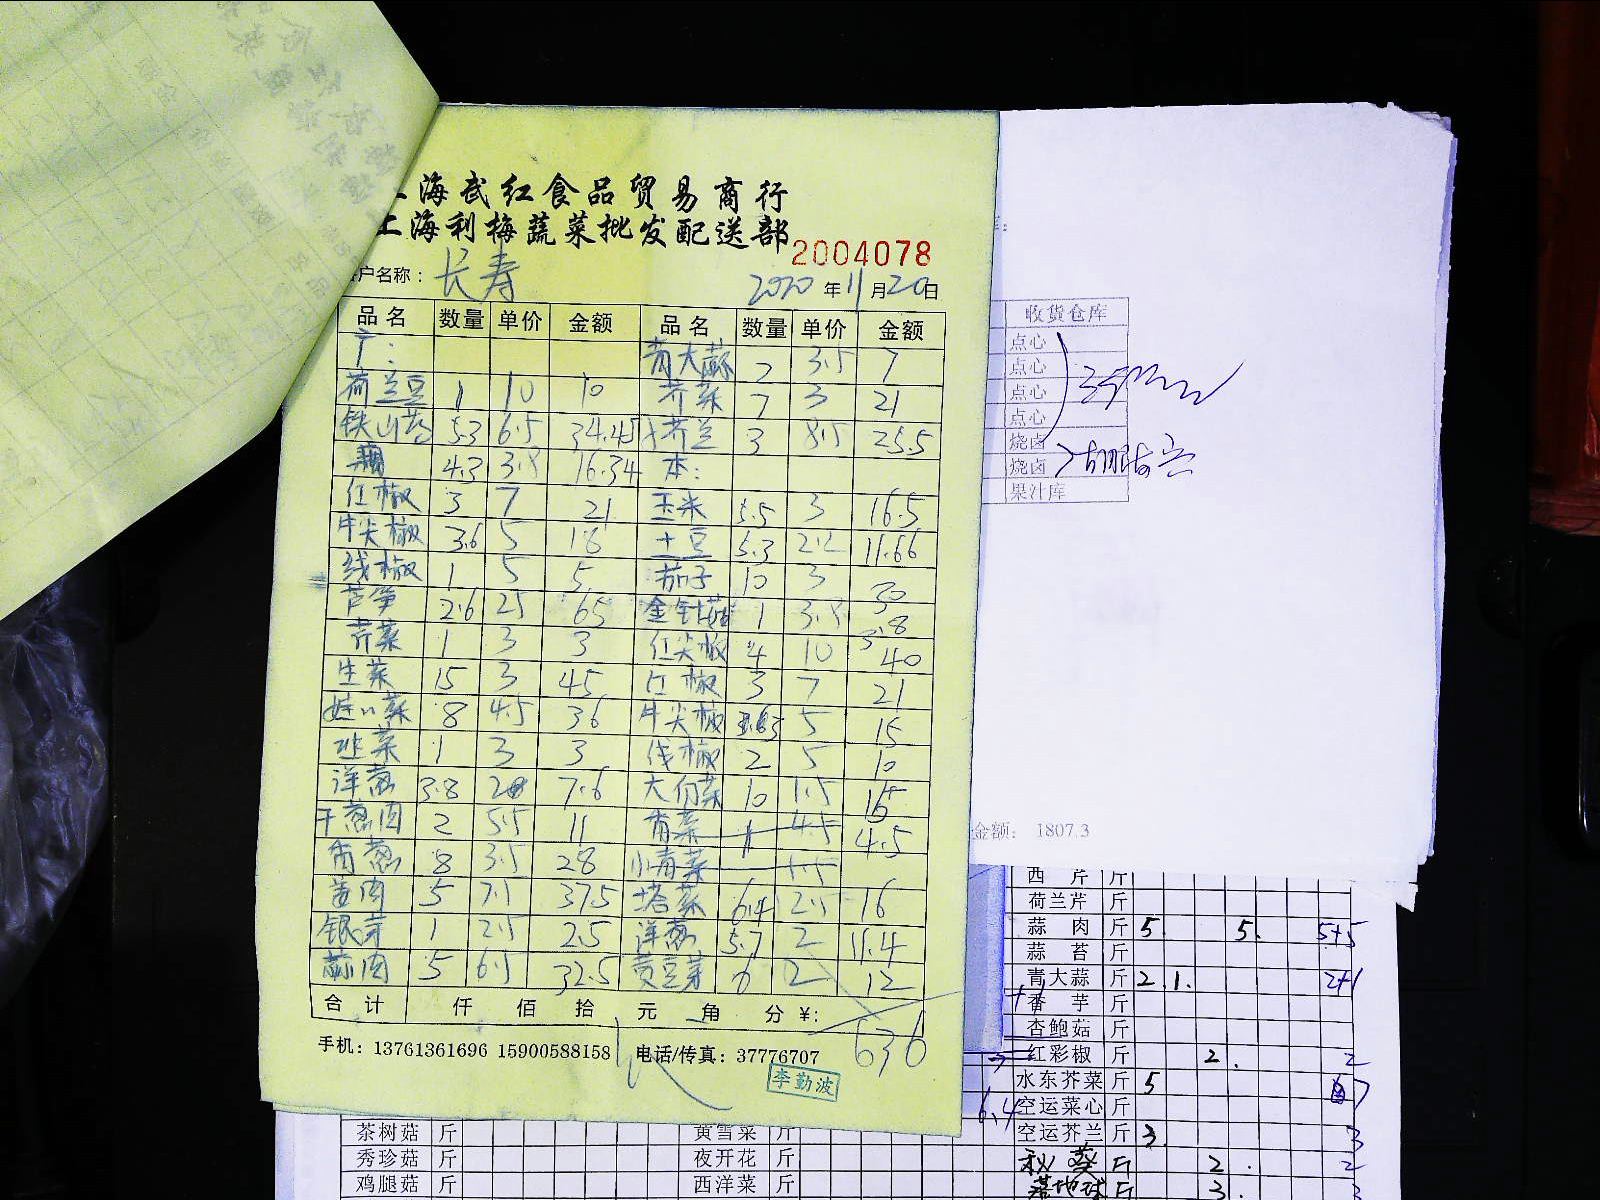 上海武红食品贸易商行
上海利梅蔬菜批发配送部
2004078
户名称： 长寿 2020 年 11 月 20 日
品名 数量 单价 金额 品名 数量 单价 金额
青大蒜 2 3.5 7
荷兰豆 1 10 10 芥菜 7 3 21
铁山药 5.3 6.5 34.45 芥兰 3 8.5 25.5
藕 4.3 3.8 16.34 本：
红椒 3 7 21 玉米 5.5 3 16.5
牛尖椒 3.6 5 18 土豆 5.3 2.2 11.66
线椒 1 5 5 茄子 10 3 30
芦笋 2.6 25 65 金针菇 1 3.8 3.8
芥菜 1 3 3 红尖椒 4 10 40
生菜 15 3 45 红椒 3 7 21
娃娃菜 8 4.5 36 牛尖椒 5 15
韭菜 1 3 3 线椒 2 5 10
洋葱 3.8 2 7.6 大白菜 10 1.5 15
干葱肉 2 5.5 11 香菜 1 4.5 4.5
香葱 8 3.5 28 小青菜 1.5
姜肉 5 7.5 37.5 塔菜 6.4 2.5 16
银芽 1 2.5 2.5 洋葱 5.7 2 11.4
蒜肉 5 6.5 32.5 黄豆芽 6 2 12
合计 仟 佰 拾 元 角 分 ¥: 636
手机：13761361696 15900588158 电话/传真：37776707
李勤波
收货仓库
点心
点心
点心
点心
烧卤
烧卤
果汁库
金额： 1807.3
西芹 斤
荷兰芹 斤
蒜肉 斤 5. 5. 5+5
蒜苔 斤
青大蒜 斤 2. 1. 2+1
香芋 斤
杏鲍菇 斤
红彩椒 斤 2. 2
水东芥菜 斤 5 7
6.4 空运菜心 斤
空运芥兰 斤 3. 3
秋葵 斤 2. 2
斤 3. 3
茶树菇 斤 黄雪菜 斤
秀珍菇 斤 夜开花 斤
鸡腿菇 斤 西洋菜 斤